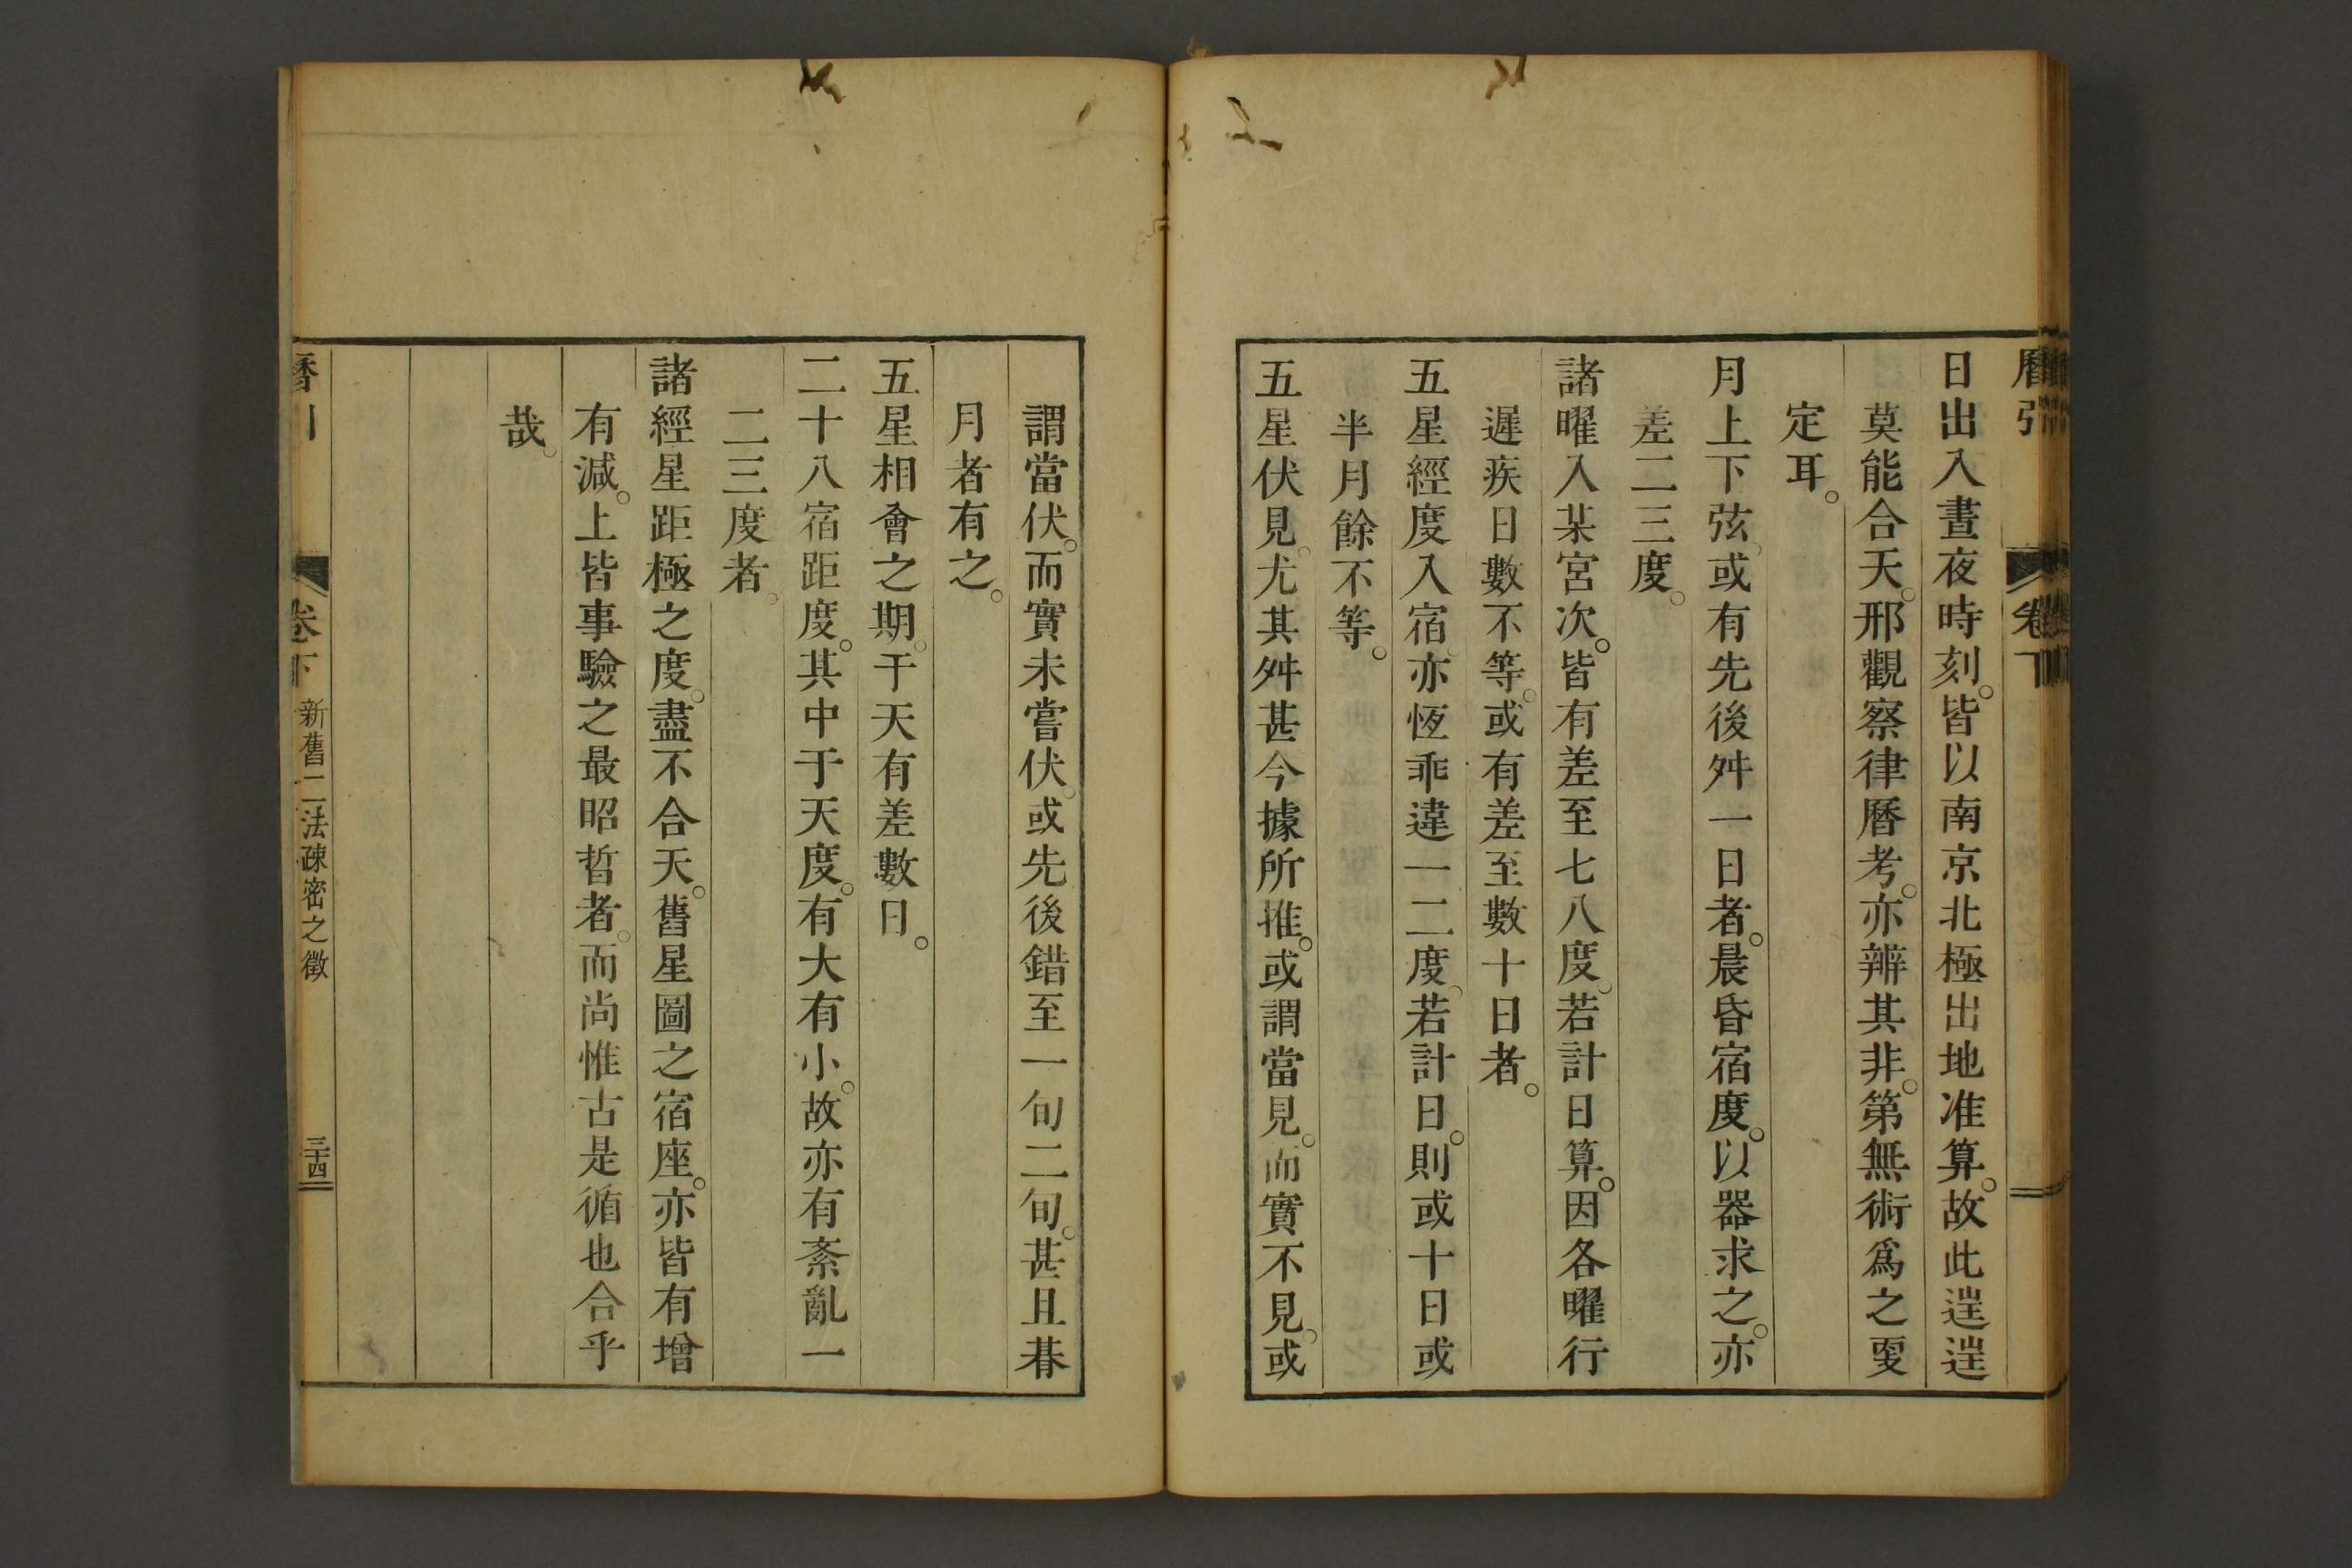 曆引
卷下
日出入晝夜時刻。皆以南京北極出地准算。故此逞逞
莫能合天。邢觀察律曆考。亦辨其非。第無術爲之更
定耳。
月上下弦。或有先後舛一日者。晨昏宿度。以器求之。亦
差二三度。
諸曜入某宮次。皆有差至七八度。若計日算。因各曜行
遲疾日數不等。或有差至數十日者。
五星經度入宿。亦恆乖違一二度。若計日。則或十日或
半月餘不等。
五星伏見。尤其舛甚今據所推。或謂當見。而實不見。或
謂當伏。而實未嘗伏。或先後錯至一旬二旬。甚且朞
月者有之。
五星相會之期。于天有差數日。
二十八宿距度。其中于天度。有大有小。故亦有紊亂一
二三度者。
諸經星距極之度。盡不合天。舊星圖之宿座。亦皆有增
有減。上皆事驗之最昭晢者。而尚惟古是循也合乎
哉。
曆引
卷下
新舊二法疎密之徵
三十四